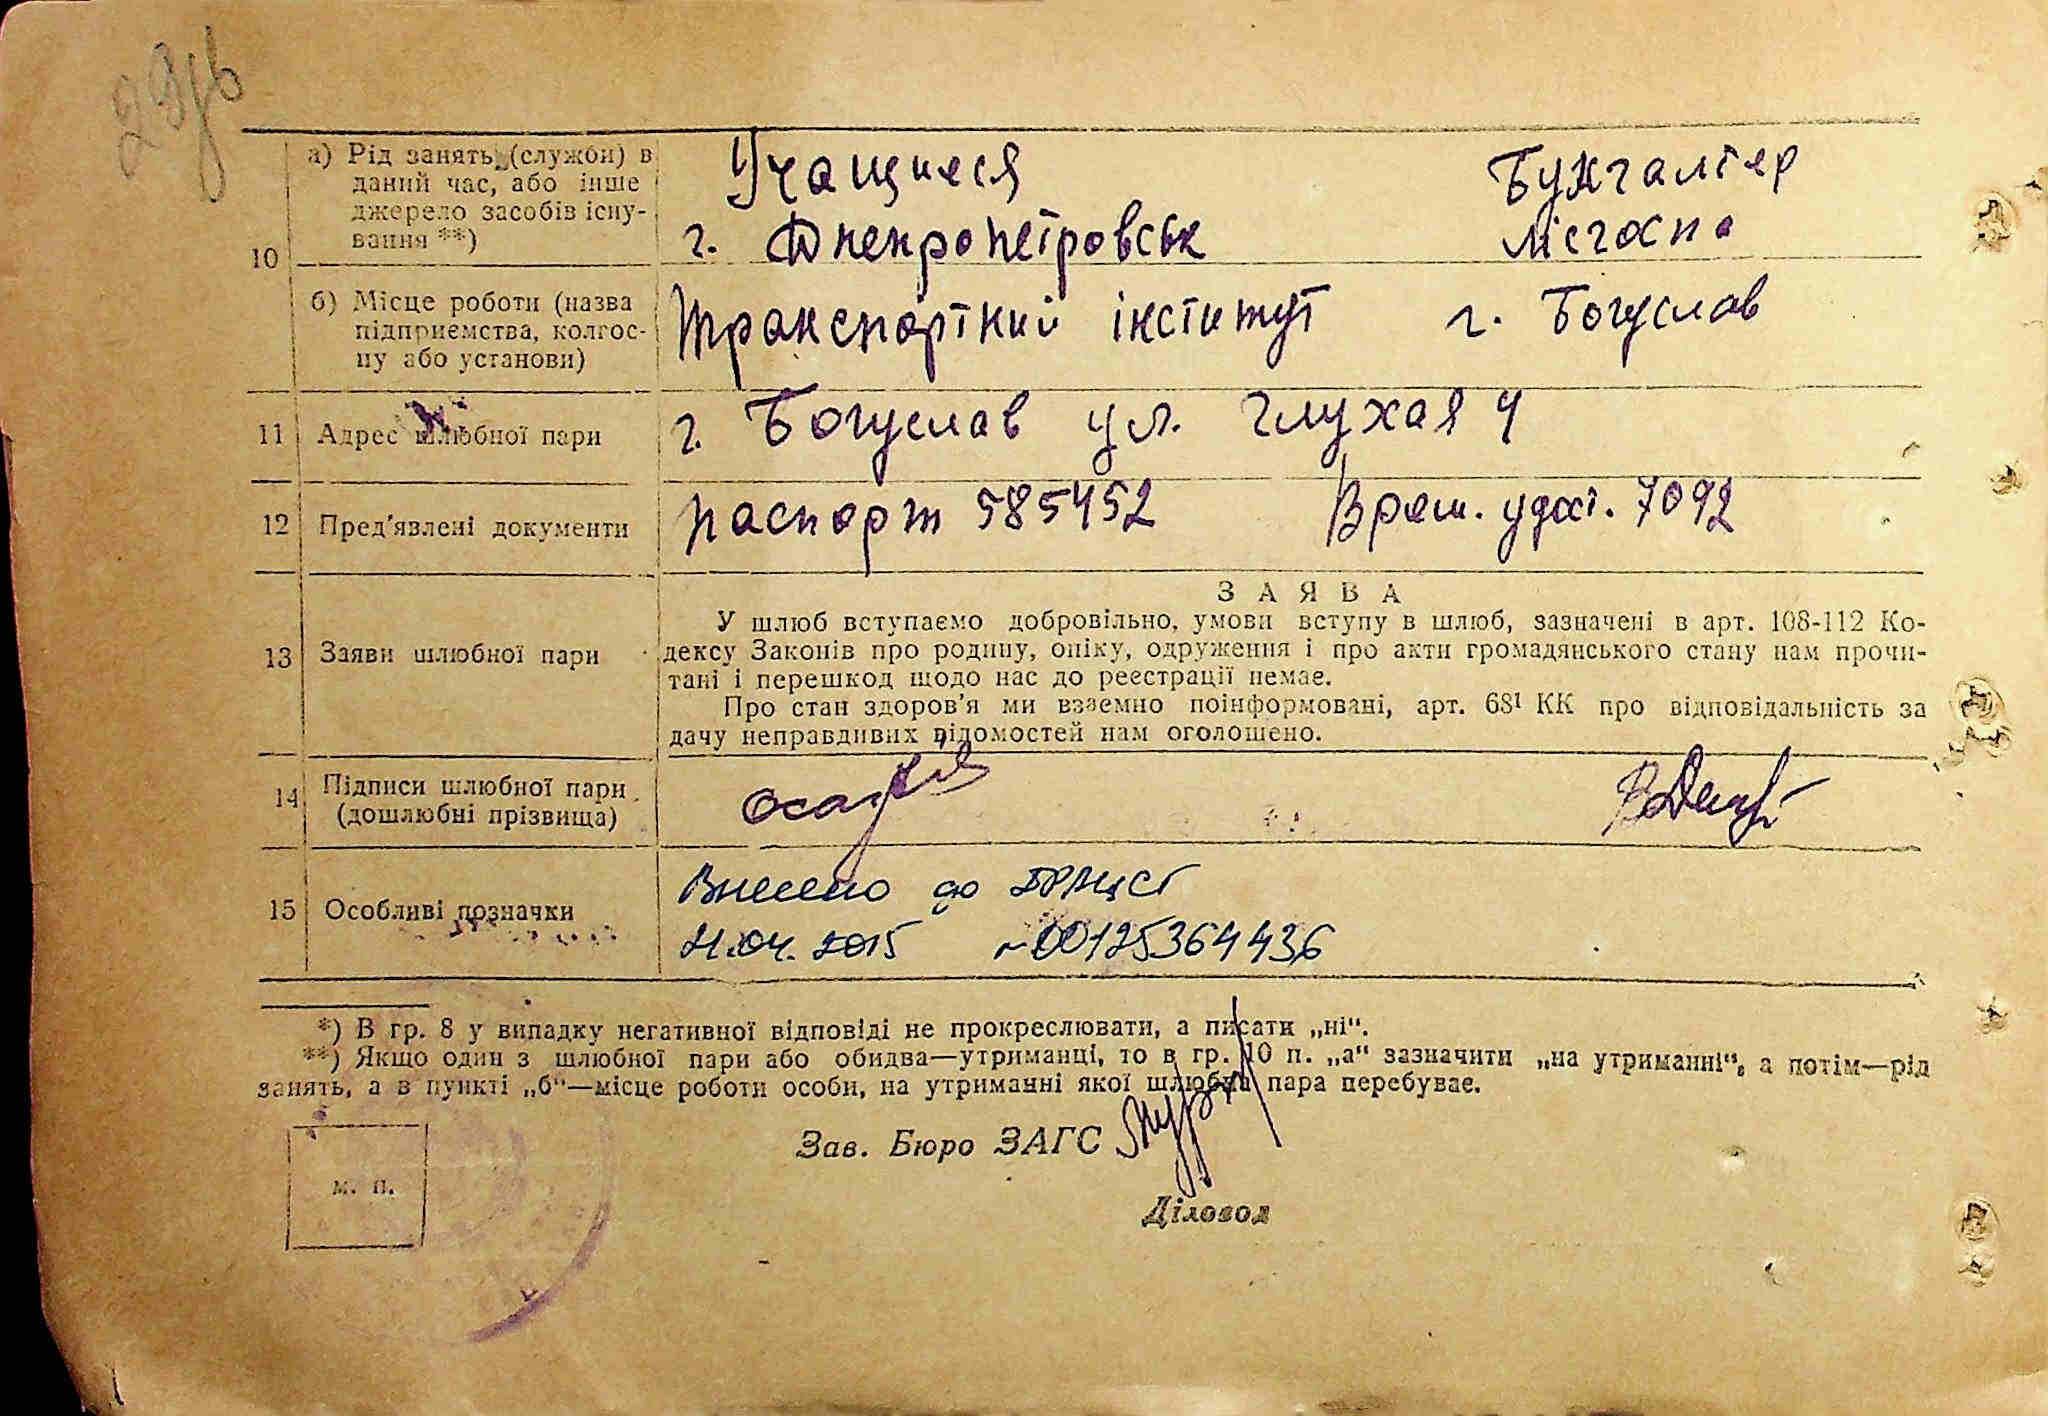 а) Рід занять (служби) в даний час, або інше джерело засобів існування **)
Учащиеся
Бухгалтер
г. Днепропетровськ
лісгоспа
10
б) Місце роботи (назва підприємства, колгоспу або установи)
Транспортний інститут
г. Богуслав
11 Адрес шлюбної пари
г. Богуслав ул. Глухая 4
12 Пред'явлені документи
паспорт 585452
Врем. удост. 7092
13 Заяви шлюбної пари
ЗАЯВА
У шлюб вступаємо добровільно, умови вступу в шлюб, зазначені в арт. 108-112 Ко-
дексу Законів про родину, опіку, одруження і про акти громадянського стану нам прочи-
тані і перешкод щодо нас до реєстрації немає.
Про стан здоров'я ми взаємно поінформовані, арт. 68¹ КК про відповідальність за
дачу неправдивих відомостей нам оголошено.
14 Підписи шлюбної пари
(дошлюбні прізвища)
15 Особливі позначки
Внесено до ДРАЦСГ
21.04.2015 №00125364436
*) В гр. 8 у випадку негативної відповіді не прокреслювати, а писати „ні".
**) Якщо один з шлюбної пари або обидва—утриманці, то в гр. 10 п. „а" зазначити „на утриманні", а потім—рід
занять, а в пункті „б"—місце роботи особи, на утриманні якої шлюбна пара перебуває.
Зав. Бюро ЗАГС
м. п.
Діловод